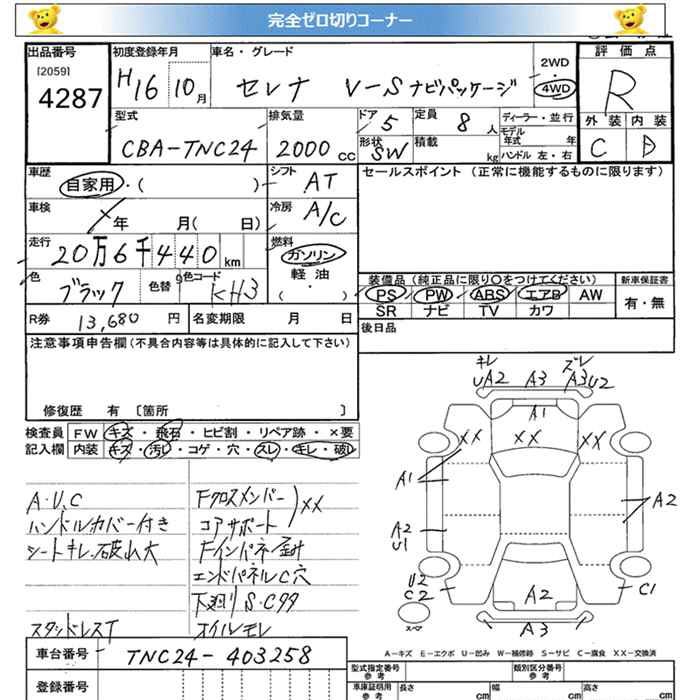 完全ゼロ切りコーナー
出品番号 初度登録年月 車名・グレード 評価点
[2059] 4287 H16 10月 セレナ V-Sナビパッケージ 2WD 4WD R
外装 内装
C D
型式 排気量 ドア 5 定員 8人 ディーラー・並行
CBA-TNC24 2000cc 形状 SW 積載 kg モデル年式 年
ハンドル 左・右
車歴 自家用・( ) シフト AT セールスポイント(正常に機能するものに限ります)
車検 年 月( 日) 冷房 A/C
走行 20万6千440km 燃料 ガソリン
軽油
・( )
色 ブラック 色替 色コード KH3
装備品(純正品に限り○をつけてください) 新車保証書
PS PW ABS エアB AW 有・無
SR ナビ TV カワ
R券 13,680円 名変期限 月 日
後日品
注意事項申告欄(不具合内容等は具体的に記入して下さい)
修復歴 有 〔箇所 〕
検査員 FW キズ・飛石・ヒビ割・リペア跡・×要
記入欄 内装 キズ・汚レ・コゲ・穴・スレ・キレ・破レ
A・U,C
ハンドルカバー付き
シートキレ.破れ大
スタッドレスT
Fクロスメンバー
コアサポート XX
Fインパネ
エンドパネルC穴
下廻りS・Cササ
オイルモレ
キレ ズレ
UA2 A3 A3U2
A1
XX XX XX
A1
A2
A2
U1
U2
C2
A2
C1
A3
スペア
A－キズ E－エクボ U－凹み W－補修跡 S－サビ C－腐食 XX－交換済
車台番号 TNC24-403258
登録番号
型式指定番号 参考 類別区分番号 参考
車庫証明用 参考 長さ cm 幅 cm 高さ cm